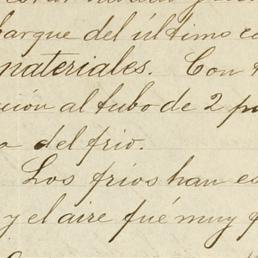 barque del último
materiales. Con
ción al tubo de 2
del frio.
Los frios han
y el aire fué muy